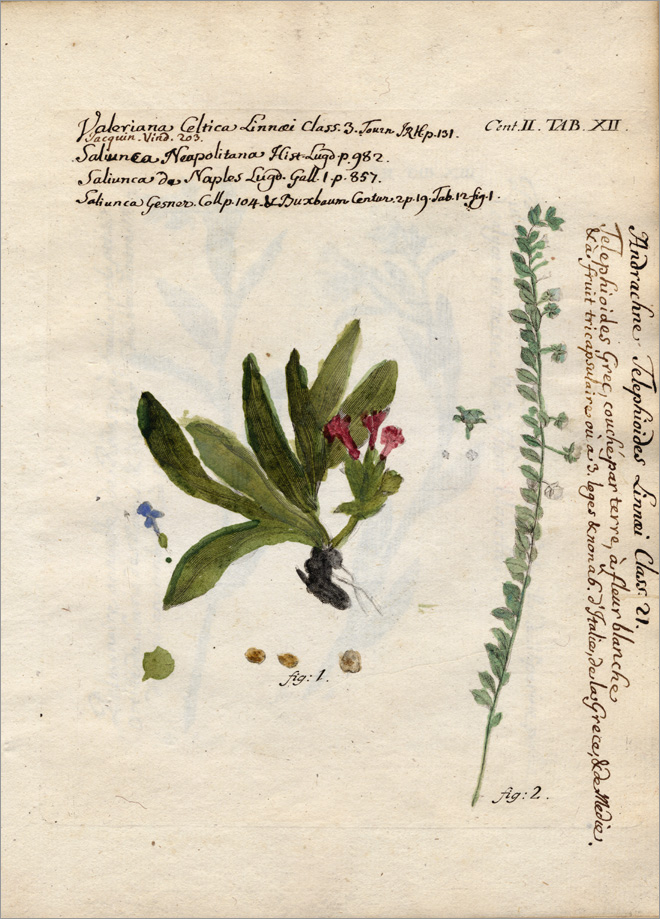 Valeriana Celtica Linnæi Class. 3. Tourn IRH p. 131.
Jacquin. Vind. 203.
Saliunca Neapolitana Hist Lugd p. 982.
Saliunca de Naples Lugd. Gall. 1 p. 857.
Saliunca Gesner. Coll p. 104. & Buxbaum Centur. 2 p. 19. Tab. 12 fig. 1.
Cent. II. TAB. XII.
Andrachne Telephioides Linnæi Class. 21.
Telephioides Grec, couché par terre, à fleur blanche
& à fruit tricapsulaire où a 3. loges & non a 6. d'Italie, de la Grece, & de Medie.
fig: 1.
fig: 2.